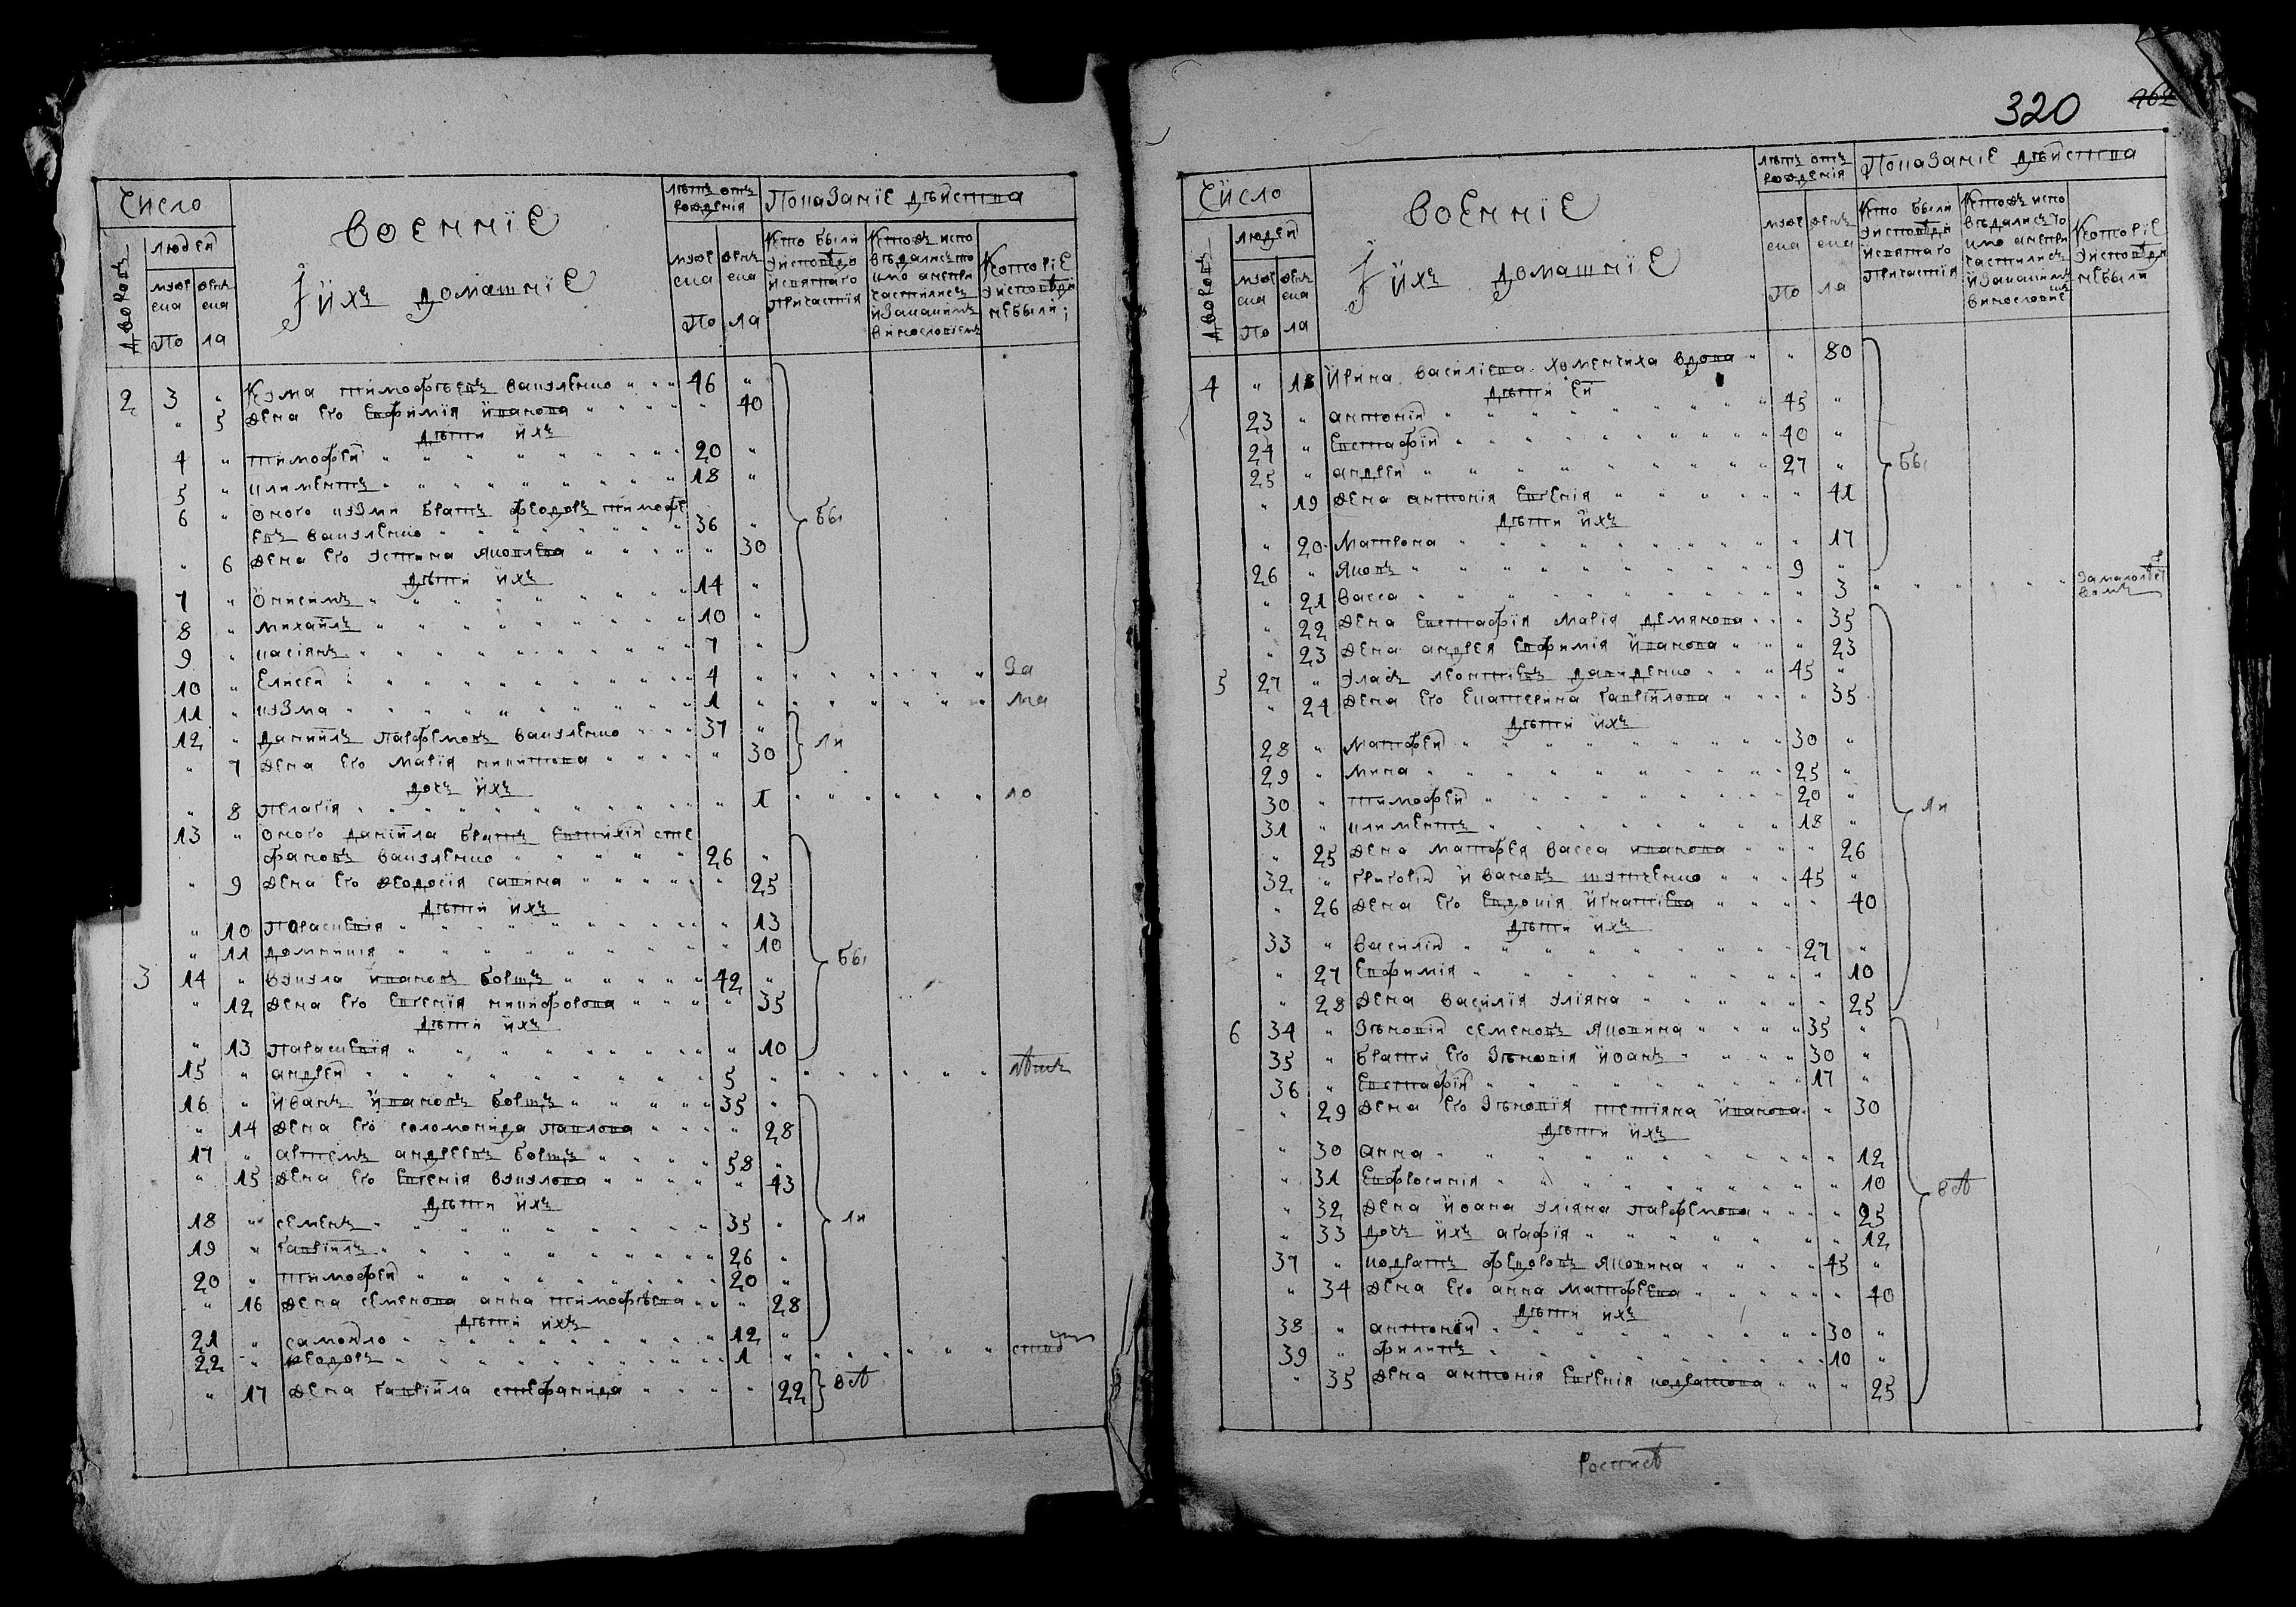 Число
Дворовъ
людей
муже
ска
женъ
ска
По
ла
Военніе
И ихъ домашніе
лѣтъ отъ
рожденія
муже
ска
женъ
ска
По
ла
Показаніе дѣйства
Кто были
уисповѣди
исвятаго
Причастія
Ктожъ испо
вѣдались то
кмо а непри
частились
и Закакимъ
винословіемъ
Которіе
уисповѣди
небыли
2 3 " Кузма тимофѣевъ вакуленко 46 "
" 5 жена его Евфимія иванова " 40
дѣти ихъ
4 " тимофей 20 "
5 " климентъ 18 "
6 " оного кузми братъ феодоръ тимофе
евъ вакуленко 36 "
" 6 жена его устина яковлева " 30
дѣти ихъ
7 " Онисимъ 14 "
8 " михаилъ 10 "
9 " касіянъ 7 "
бы
10 " Елисей 4 " За
11 " кузма 1 " ма
12 " даниилъ парфеновъ вакуленко 37 "
" 7 жена его марія никитова " 30
ли
дочъ ихъ
" 8 пелагія " 1 ло
13 " оного даніила братъ Евтихій сте
фановъ вакуленко 26 "
" 9 жена его феодосія савина " 25
дѣти ихъ
" 10 Параскевія " 13
" 11 домникія " 10
3 14 " вукула ивановъ борщъ 42 "
" 12 жена его Евгенія никифорова " 35
дѣти ихъ
" 13 Параскевія " 10
бы
15 " андрей 5 "
16 " иванъ ивановъ борщъ 35 "
" 14 жена его соломонида павлова " 28
17 " артемъ андреевъ борщъ 58 "
" 15 жена его Евгенія вукулова " 43
дѣти ихъ
18 " семенъ 35 "
19 " гавріилъ 26 "
20 " тимофей 20 "
" 16 жена семенова анна тимофѣева " 28
дѣти ихъ
21 " самойло 12 "
ли
22 " феодоръ 1 "
" 17 жена гавріила стефанида " 22
320
262
Число
Дворовъ
людей
муже
ска
женъ
ска
По
ла
Военніе
И ихъ домашніе
лѣтъ отъ
рожденія
муже
ска
женъ
ска
По
ла
Показаніе дѣйства
Кто были
уисповѣди
исвятаго
причастія
Ктожъ испо
вѣдались то
кмо а непри
частились
и Закакимъ
винословіе
Которіе
уисповѣди
небыли
4 " 18 Ирина василіева хоменчиха вдова " 80
дѣти ей
23 " антоній 45 "
24 " Евстафій 40 "
25 " андрей 27 "
" 19 жена антонія Евгенія " 41
дѣти ихъ
" 20 Матрона " 17
26 " Яковъ 9 "
бы
" 21 васса " 3
" 22 жена Евстафія марія демянова " 35
" 23 жена андрея Евфимія иванова " 23
5 27 " уласъ леонтіевъ давиденко 45 "
" 24 жена его Екатерина гавріилова " 35
дѣти ихъ
28 " Матфей 30 "
29 " мина 25 "
30 " тимофей 20 "
31 " климентъ 18 "
" 25 жена матфея васса иванова " 26
32 " григорій ивановъ шутенко 45 "
" 26 жена его Евдокія игнатіева " 40
дѣти ихъ
33 " василій 27 "
" 27 Евфимія " 10
" 28 жена василія уліяна " 25
ли
6 34 " Зѣновій семеновъ яковина 35 "
35 " братъ его Зѣновія иоанъ 30 "
36 " Евстафій 17 "
" 29 жена его Зѣновія тетіяна иванова " 30
дѣти ихъ
" 30 анна " 12
" 31 Евфросинія " 10
" 32 жена иоана уліяна парфенова " 25
" 33 дочъ ихъ агафія " 12
37 " кодратъ федоровъ яковина 45 "
" 34 жена его анна матфеева " 40
дѣти ихъ
38 " антоній 30 "
39 " филипъ 10 "
" 35 жена антонія Евгенія кодратова " 25